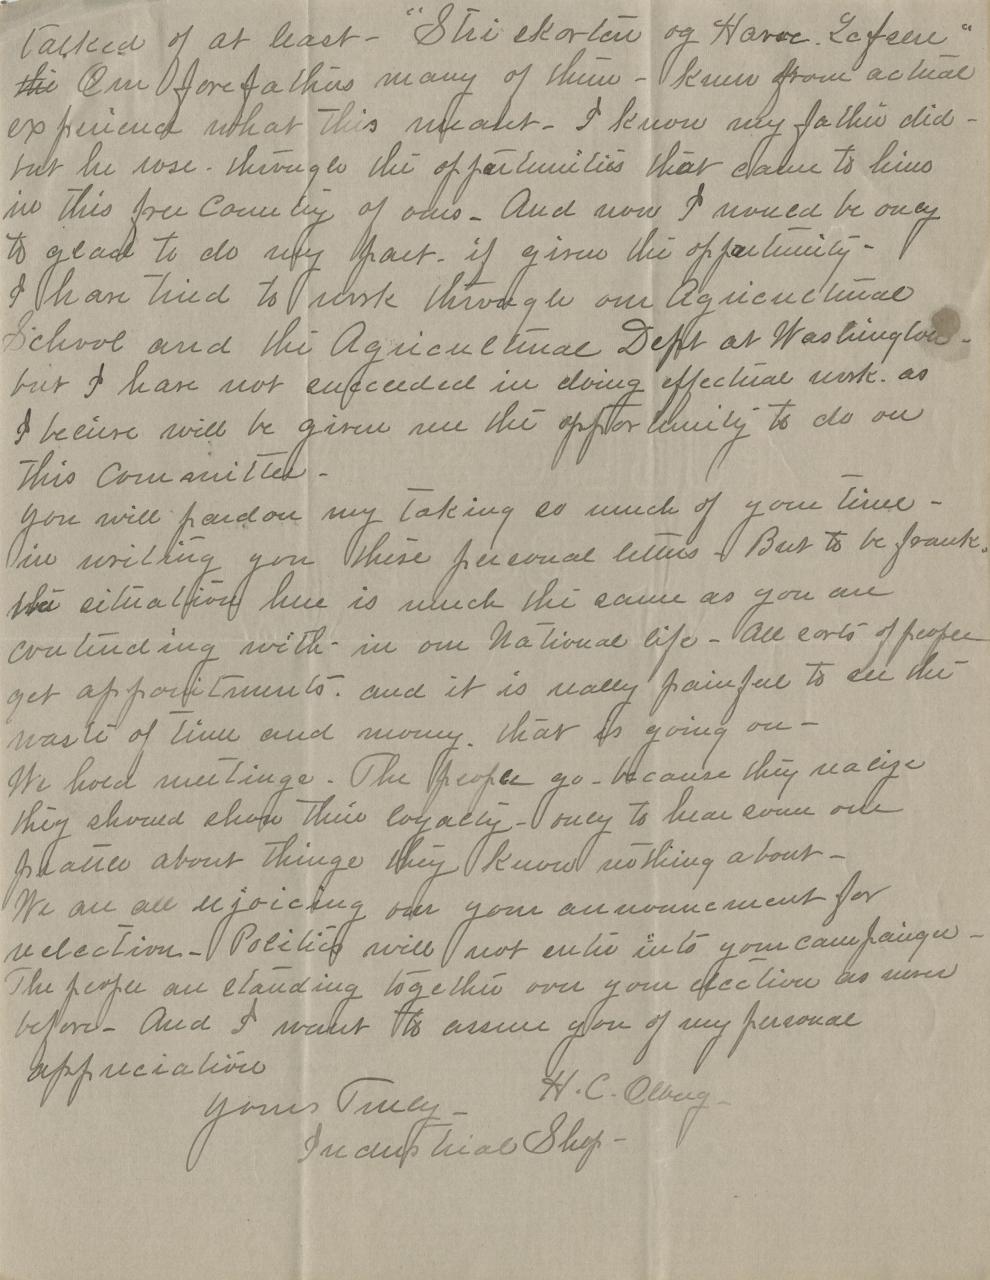 talked of at least - "Stri ekorten og Havre. Lefsen"
the Our forefathers many of them - knew from actual
experience what this meant - I know my father did -
but he rose - through the opportunities that came to him
in this free Country of ours - And now I would be only
to glad to do my part - if given the opportunity -
I have tried to work through our Agricultural
School and the Agricultural Dept at Washington -
but I have not succeeded in doing effectual work. as
I believe will be given me the opportunity to do on
this Committee -
you will pardon my taking so much of your time -
in writing you these personal letters - But to be frank.
the situation here is much the same as you are
contending with - in our National life - All sorts of people
get appointments. and it is really painful to see the
waste of time and money. that is going on -
We hold meetings - The people go - because they realize
they should show their loyalty - only to hear some one
prattle about things they know nothing about -
We are all rejoicing over your announcement for
relection - Politics will not enter into your campaign -
The people are standing together over your election as never
before - And I want to assure you of my personal
appreciation
yours Truly - H. C.
Industrial Shop -